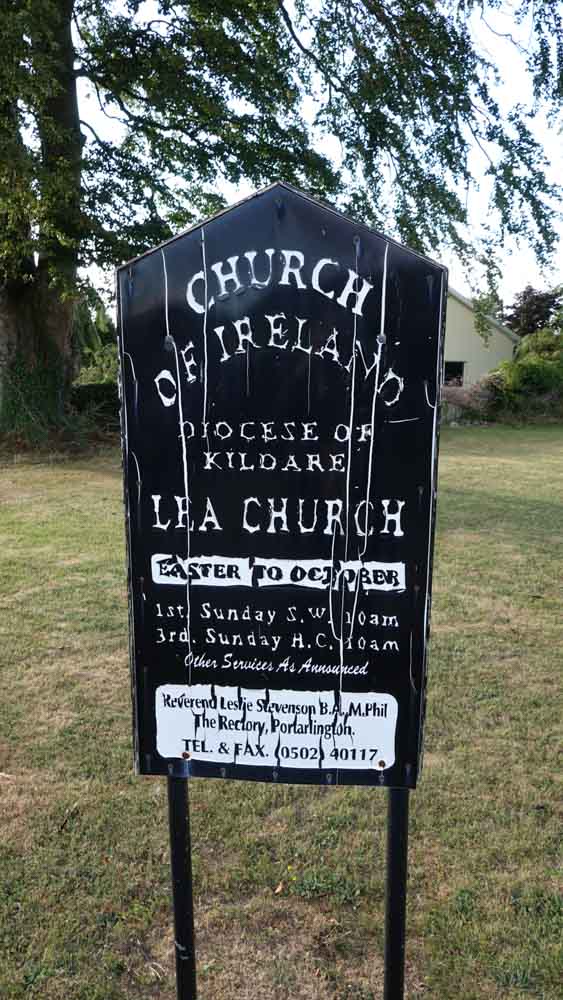 CHURCH
OF IRELAND
DIOCESE OF
KILDARE
LEA CHURCH
EASTER TO OCTOBER
1st. Sunday S.W. 10am
3rd. Sunday H.C. 10am
Other Services As Announced
Reverend Leslie Stevenson B.A., M.Phil
The Rectory, Portarlington.
TEL. & FAX. (0502) 40117